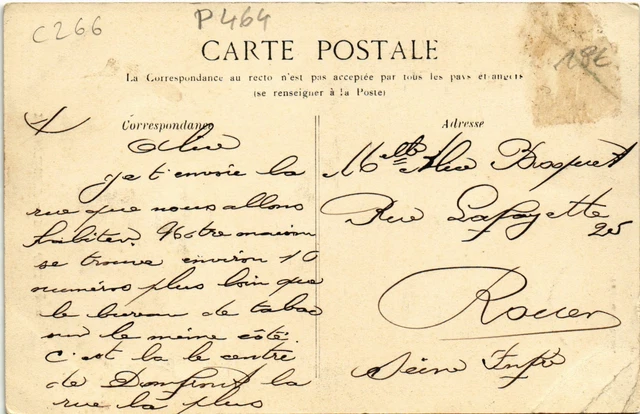 C266
P464
18€
CARTE POSTALE
La Correspondance au recto n'est pas acceptée par tous les pays étrangers
(se renseigner à la Poste)
Correspondance
Alice
Je t'envoie la
rue que nous allons
habiter. Notre maison
se trouve environ 10
numéros plus loin que
le bureau de tabac
sur le même côté.
C'est la le centre
de Domfront la
rue la plus
Adresse
Melle Alice Bosquet
Rue Lafayette 25
Rouen
Seine Infre